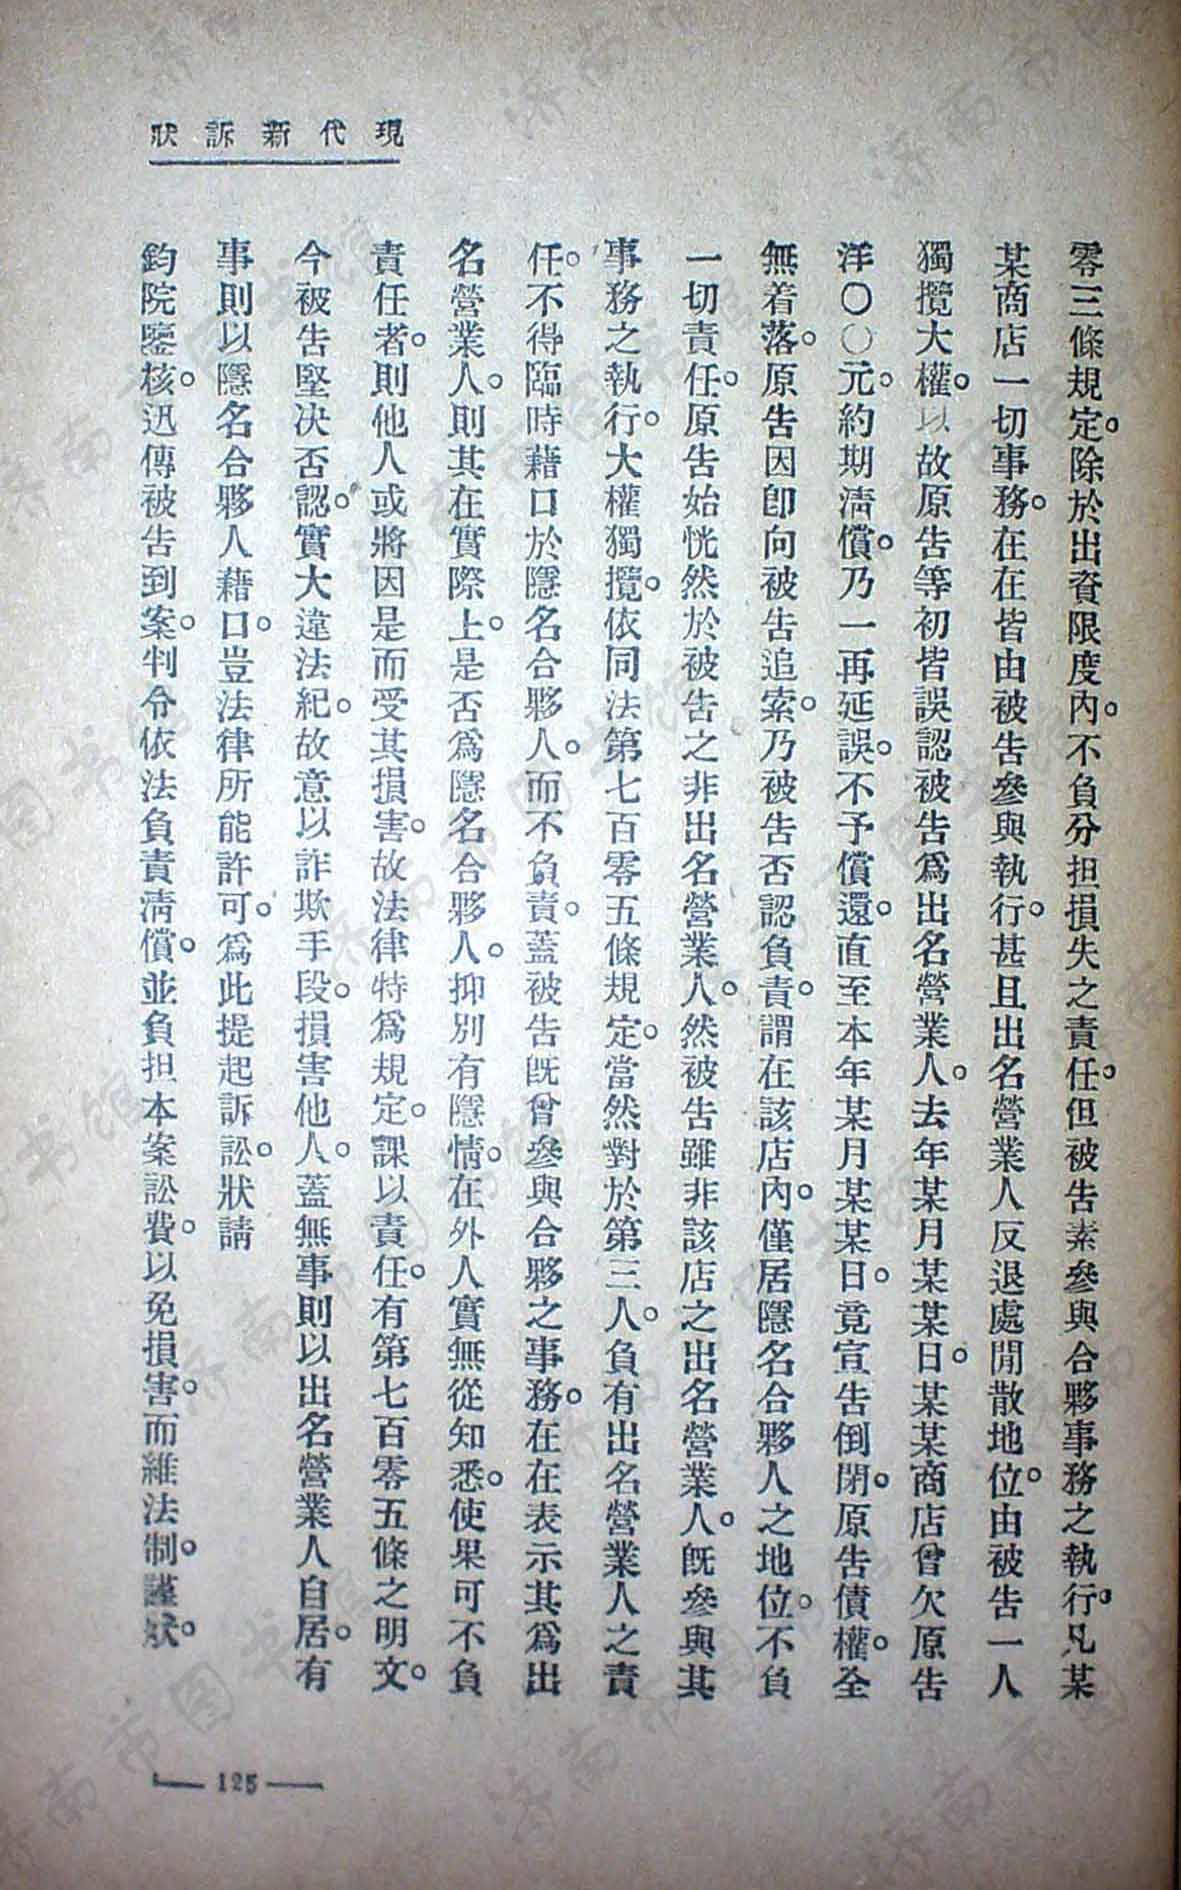 現代新訴狀
零三條規定。除於出資限度內。不負分担損失之責任。但被告素參與合夥事務之執行。凡某
某商店一切事務。在在皆由被告參與執行。甚且出名營業人反退處閒散地位。由被告一人
獨攬大權。以故原告等初皆誤認被告爲出名營業人。去年某月某某日。某某商店曾欠原告
洋〇〇元。約期淸償。乃一再延誤。不予償還。直至本年某月某某日。竟宣告倒閉。原告債權。全
無着落。原告因卽向被告追索。乃被告否認負責。謂在該店內。僅居隱名合夥人之地位。不負
一切責任。原告始恍然於被告之非出名營業人。然被告雖非該店之出名營業人。旣參與其
事務之執行。大權獨攬。依同法第七百零五條規定。當然對於第三人。負有出名營業人之責
任。不得臨時藉口於隱名合夥人。而不負責。蓋被告旣曾參與合夥之事務。在在表示其爲出
名營業人。則其在實際上。是否爲隱名合夥人。抑別有隱情。在外人實無從知悉。使果可不負
責任者。則他人或將因是而受其損害。故法律特爲規定。課以責任。有第七百零五條之明文。
今被告堅决否認。實大違法紀。故意以詐欺手段。損害他人。蓋無事則以出名營業人自居。有
事則以隱名合夥人藉口。豈法律所能許可。爲此提起訴訟。狀請
鈞院鑒核。迅傳被告到案。判令依法負責淸償。並負担本案訟費。以免損害。而維法制。謹狀。
125
济南市图书馆